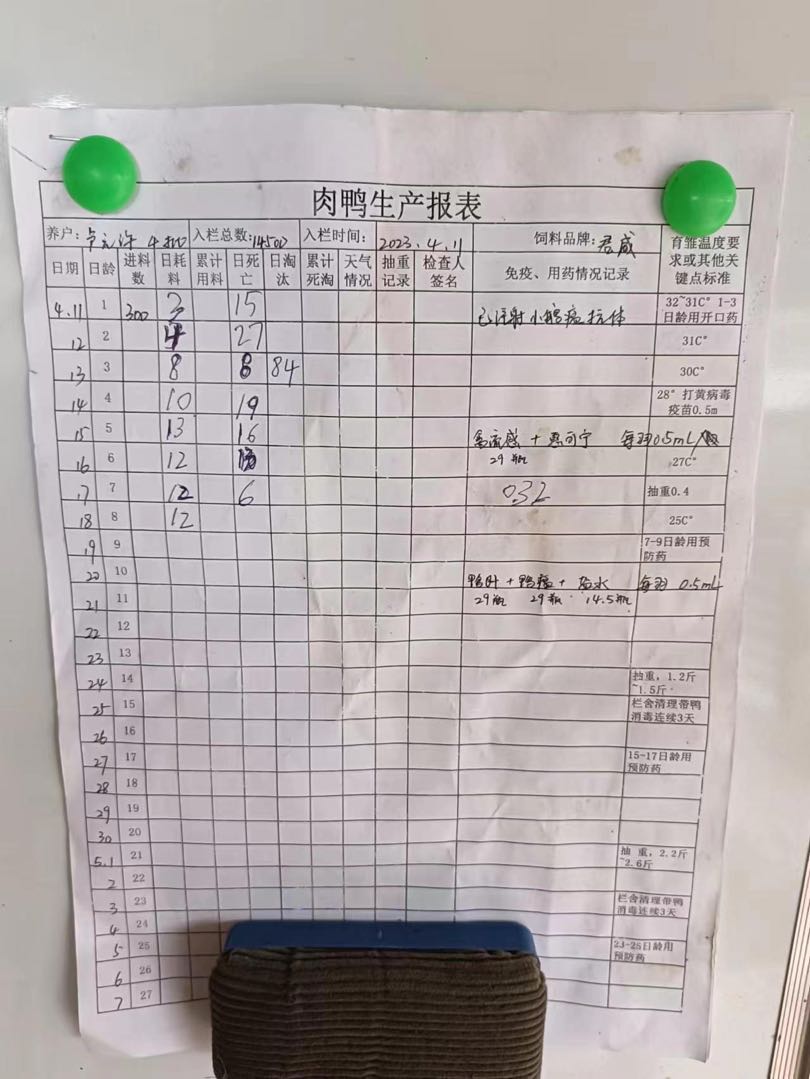 肉鸭生产报表
养户: 入栏总数:14500 入栏时间: 2023.4.11 饲料品牌:君威 育雏温度要求或其他关键点标准
日期 日龄 进料数 日耗料 累计用料 日死亡 日淘汰 累计死淘 天气情况 抽重记录 检查人签名 免疫、用药情况记录
4.11 1 300 3 15 已注射小鹅瘟抗体 32~31C° 1-3日龄用开口药
12 2 4 27 31C°
13 3 8 8 84 30C°
14 4 10 19 28° 打黄病毒疫苗0.5m
15 5 13 16 禽流感 + 每羽0.5mL
16 6 12 29瓶 27C°
17 7 12 6 0.32 抽重0.4
18 8 12 25C°
19 9 7-9日龄用预防药
20 10 鸭肝 + 鸭瘟 + 每羽 0.5mL
21 11 29瓶 29瓶 14.5瓶
22 12
23 13
24 14 抽重，1.2斤~1.5斤
25 15 栏舍清理带鸭消毒连续3天
26 16
27 17 15-17日龄用预防药
28 18
29 19
30 20
5.1 21 抽 重，2.2斤~2.6斤
2 22
3 23 栏舍清理带鸭消毒连续3天
4 24
5 25 23-25日龄用预防药
6 26
7 27